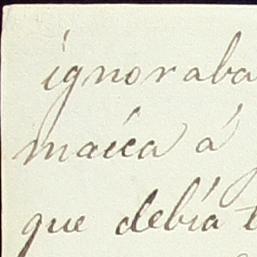 ignoraba
maica á
que debía